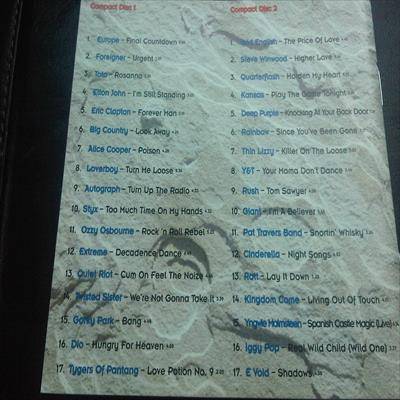 Compact Disc 1
1. Europe – Final Countdown
2. Foreigner – Urgent
3. Toto – Rosanna
4. Elton John – I'm Still Standing
5. Eric Clapton – Forever Man
6. Big Country – Look Away
7. Alice Cooper – Poison
8. Loverboy – Turn Me Loose
9. Autograph – Turn Up The Radio
10. Styx – Too Much Time On My Hands
11. Ozzy Osbourne – Rock 'n Roll Rebel
12. Extreme – Decadence Dance
13. Quiet Riot – Cum On Feel The Noize
14. Twisted Sister – We're Not Gonna Take It
15. Gorky Park – Bang
16. Dio – Hungry For Heaven
17. Tygers Of Pantang – Love Potion No. 9
Compact Disc 2
1. Bad English – The Price Of Love
2. Steve Winwood – Higher Love
3. Quarterflash – Harden My Heart
4. Kansas – Play The Game Tonight
5. Deep Purple – Knocking At Your Back Door
6. Rainbow – Since You've Been Gone
7. Thin Lizzy – Killer On The Loose
8. Y&T – Your Mama Don't Dance
9. Rush – Tom Sawyer
10. Giant – I'm A Believer
11. Pat Travers Band – Snortin' Whisky
12. Cinderella – Night Songs
13. Ratt – Lay It Down
14. Kingdom Come – Living Out Of Touch
15. Yngwie Malmsteen – Spanish Castle Magic (Live)
16. Iggy Pop – Real Wild Child (Wild One)
17. E Void – Shadows